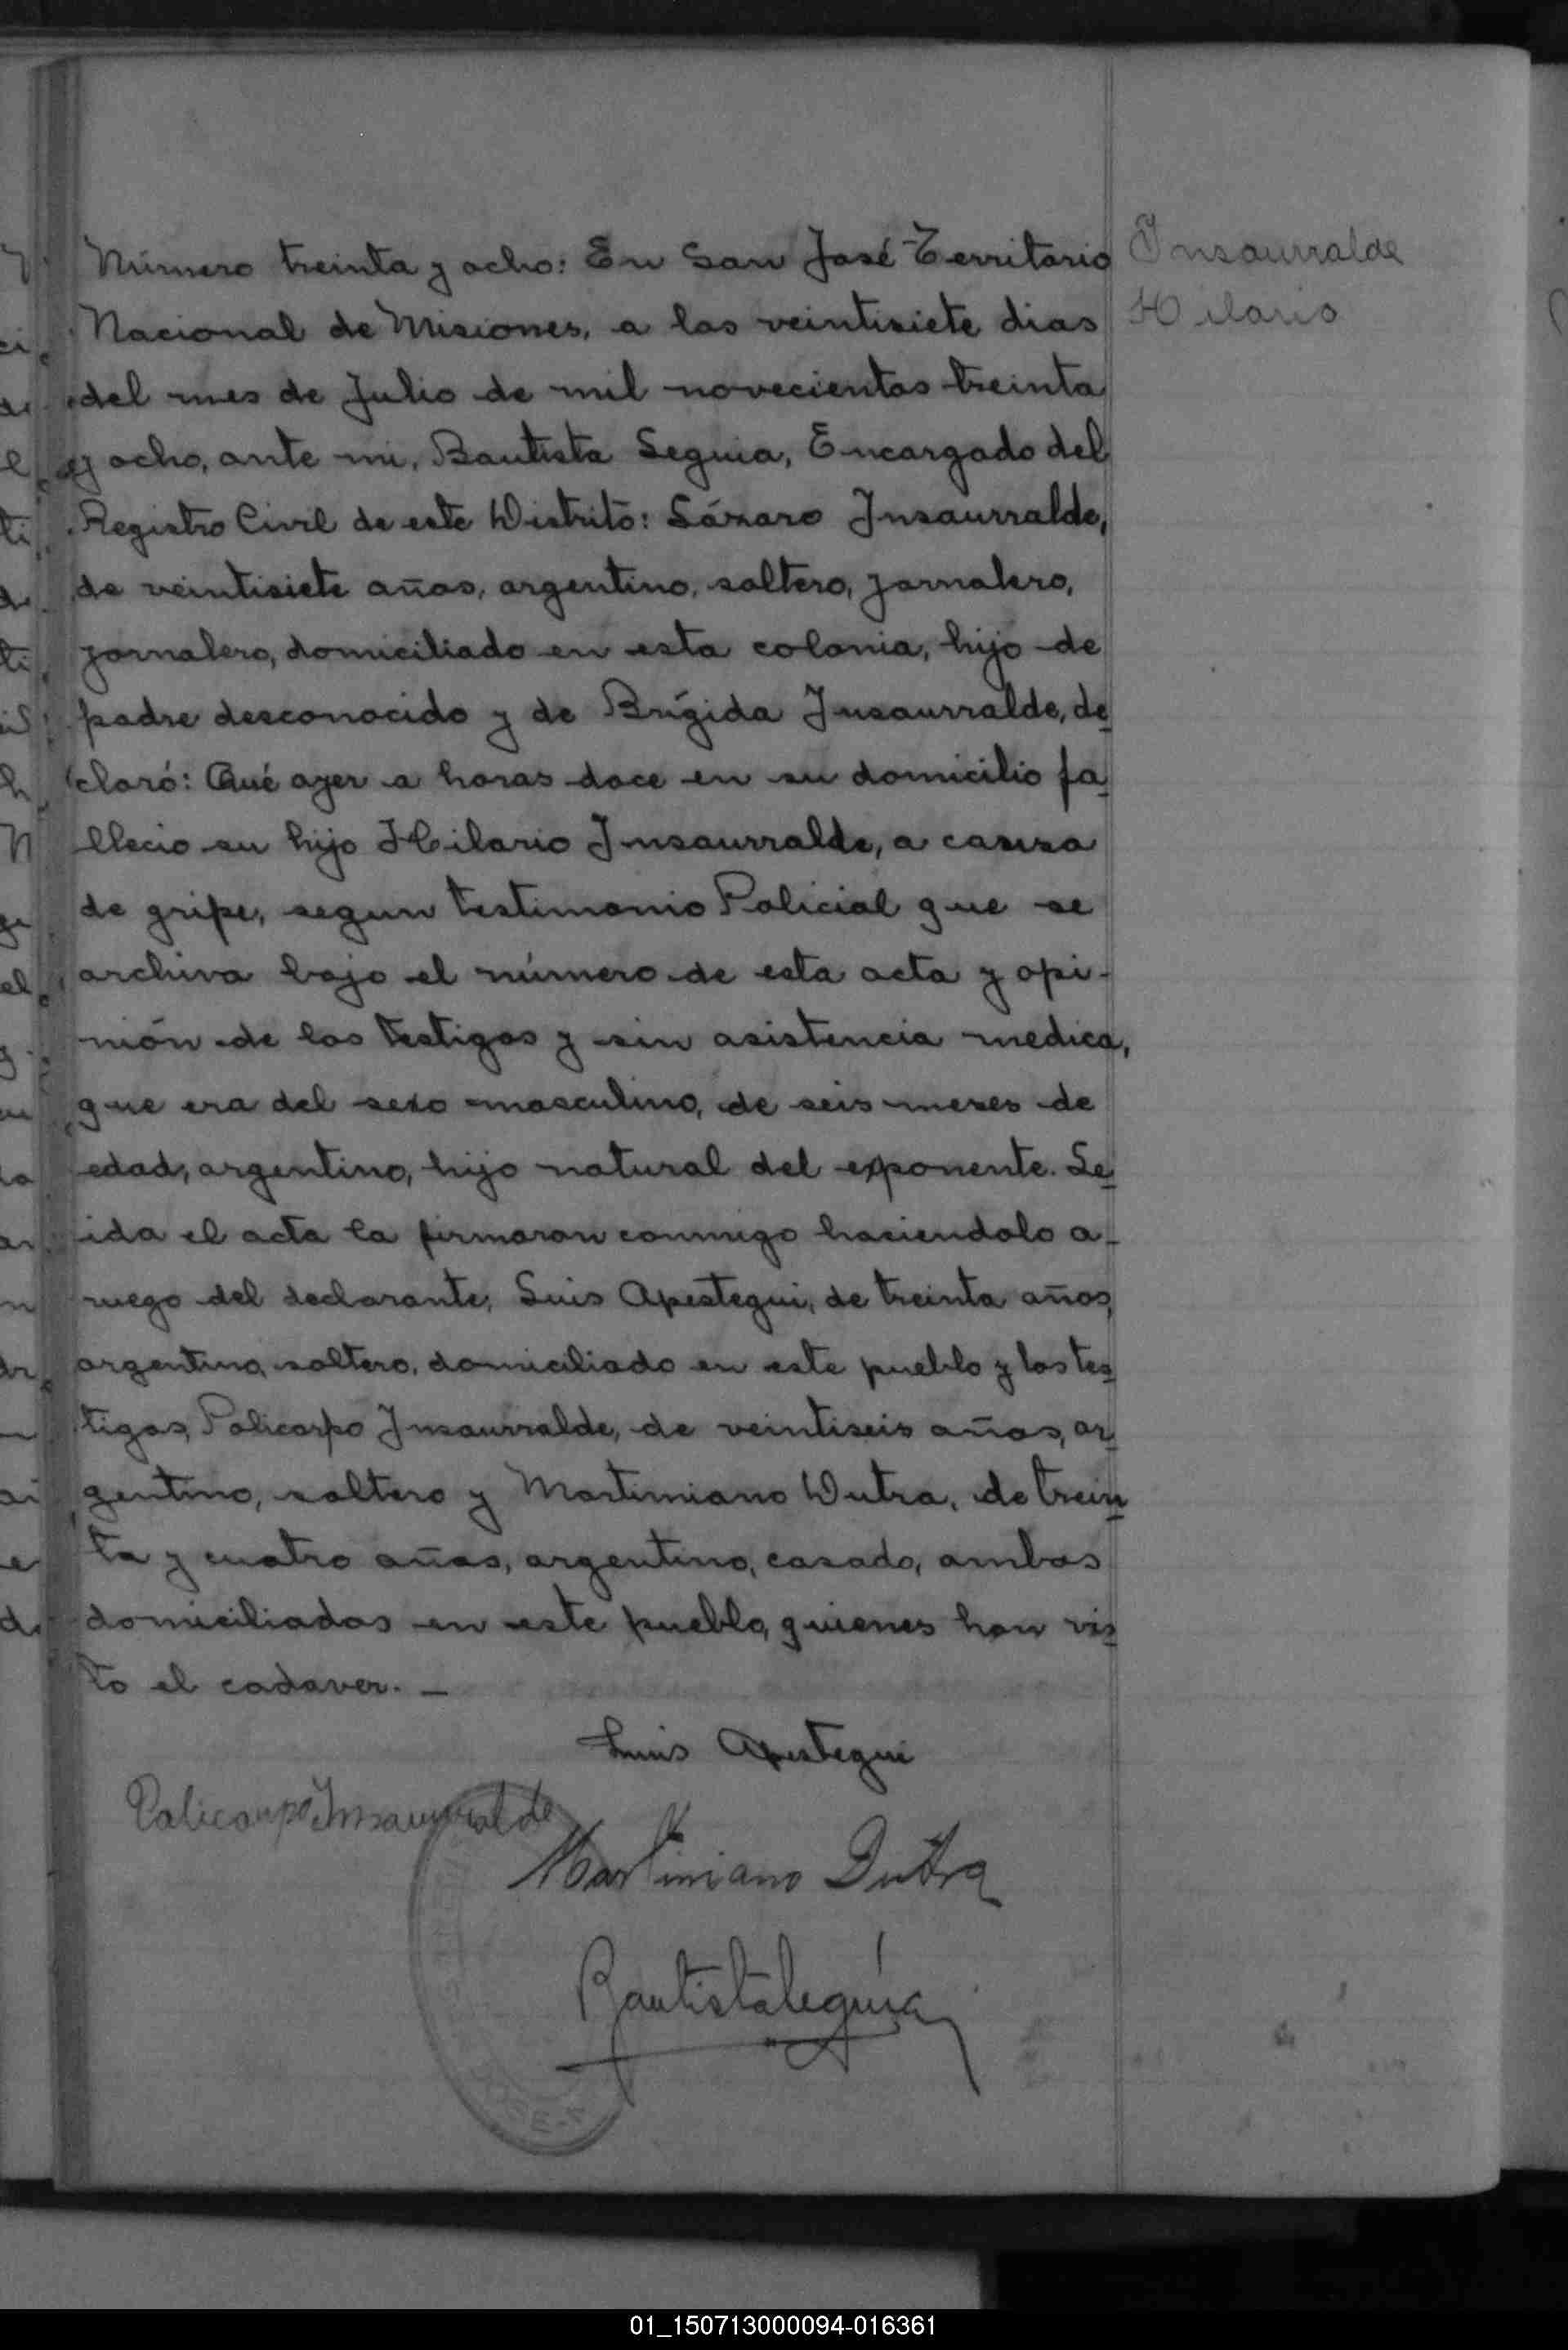 Número treinta y ocho: En San José Territorio
Nacional de Misiones, a los veintisiete dias
del mes de Julio de mil novecientos treinta
y ocho, ante mi, Bautista Seguia, Encargado del
Registro Civil de este Distrito: Lázaro Insaurralde,
de veintisiete años, argentino, soltero, jornalero,
jornalero, domiciliado en esta colonia, hijo de
padre desconocido y de Brígida Insaurralde, de
claró: Qué ayer a horas doce en su domicilio fa
llecio su hijo Hilario Insaurralde, a causa
de gripe, segun testimonio Policial que se
archiva bajo el número de esta acta y opi-
nión de los testigos y sin asistencia medica,
que era del sexo masculino, de seis meses de
edad, argentino, hijo natural del exponente. Le
ida el acta la firmaron conmigo haciendolo a
ruego del declarante, Luis Apestegui, de treinta años,
argentino, soltero, domiciliado en este pueblo y los tes
tigos, Policarpo Insaurralde, de veintiseis años, ar
gentino, soltero y Martiniano Dutra, de trein
ta y cuatro años, argentino, casado, ambos
domiciliados en este pueblo, quienes han vis
to el cadaver. -
Insaurralde
Hilario
Luis Apestegui
Policarpo Insaurralde
Martiniano Dutra
01_150713000094-016361